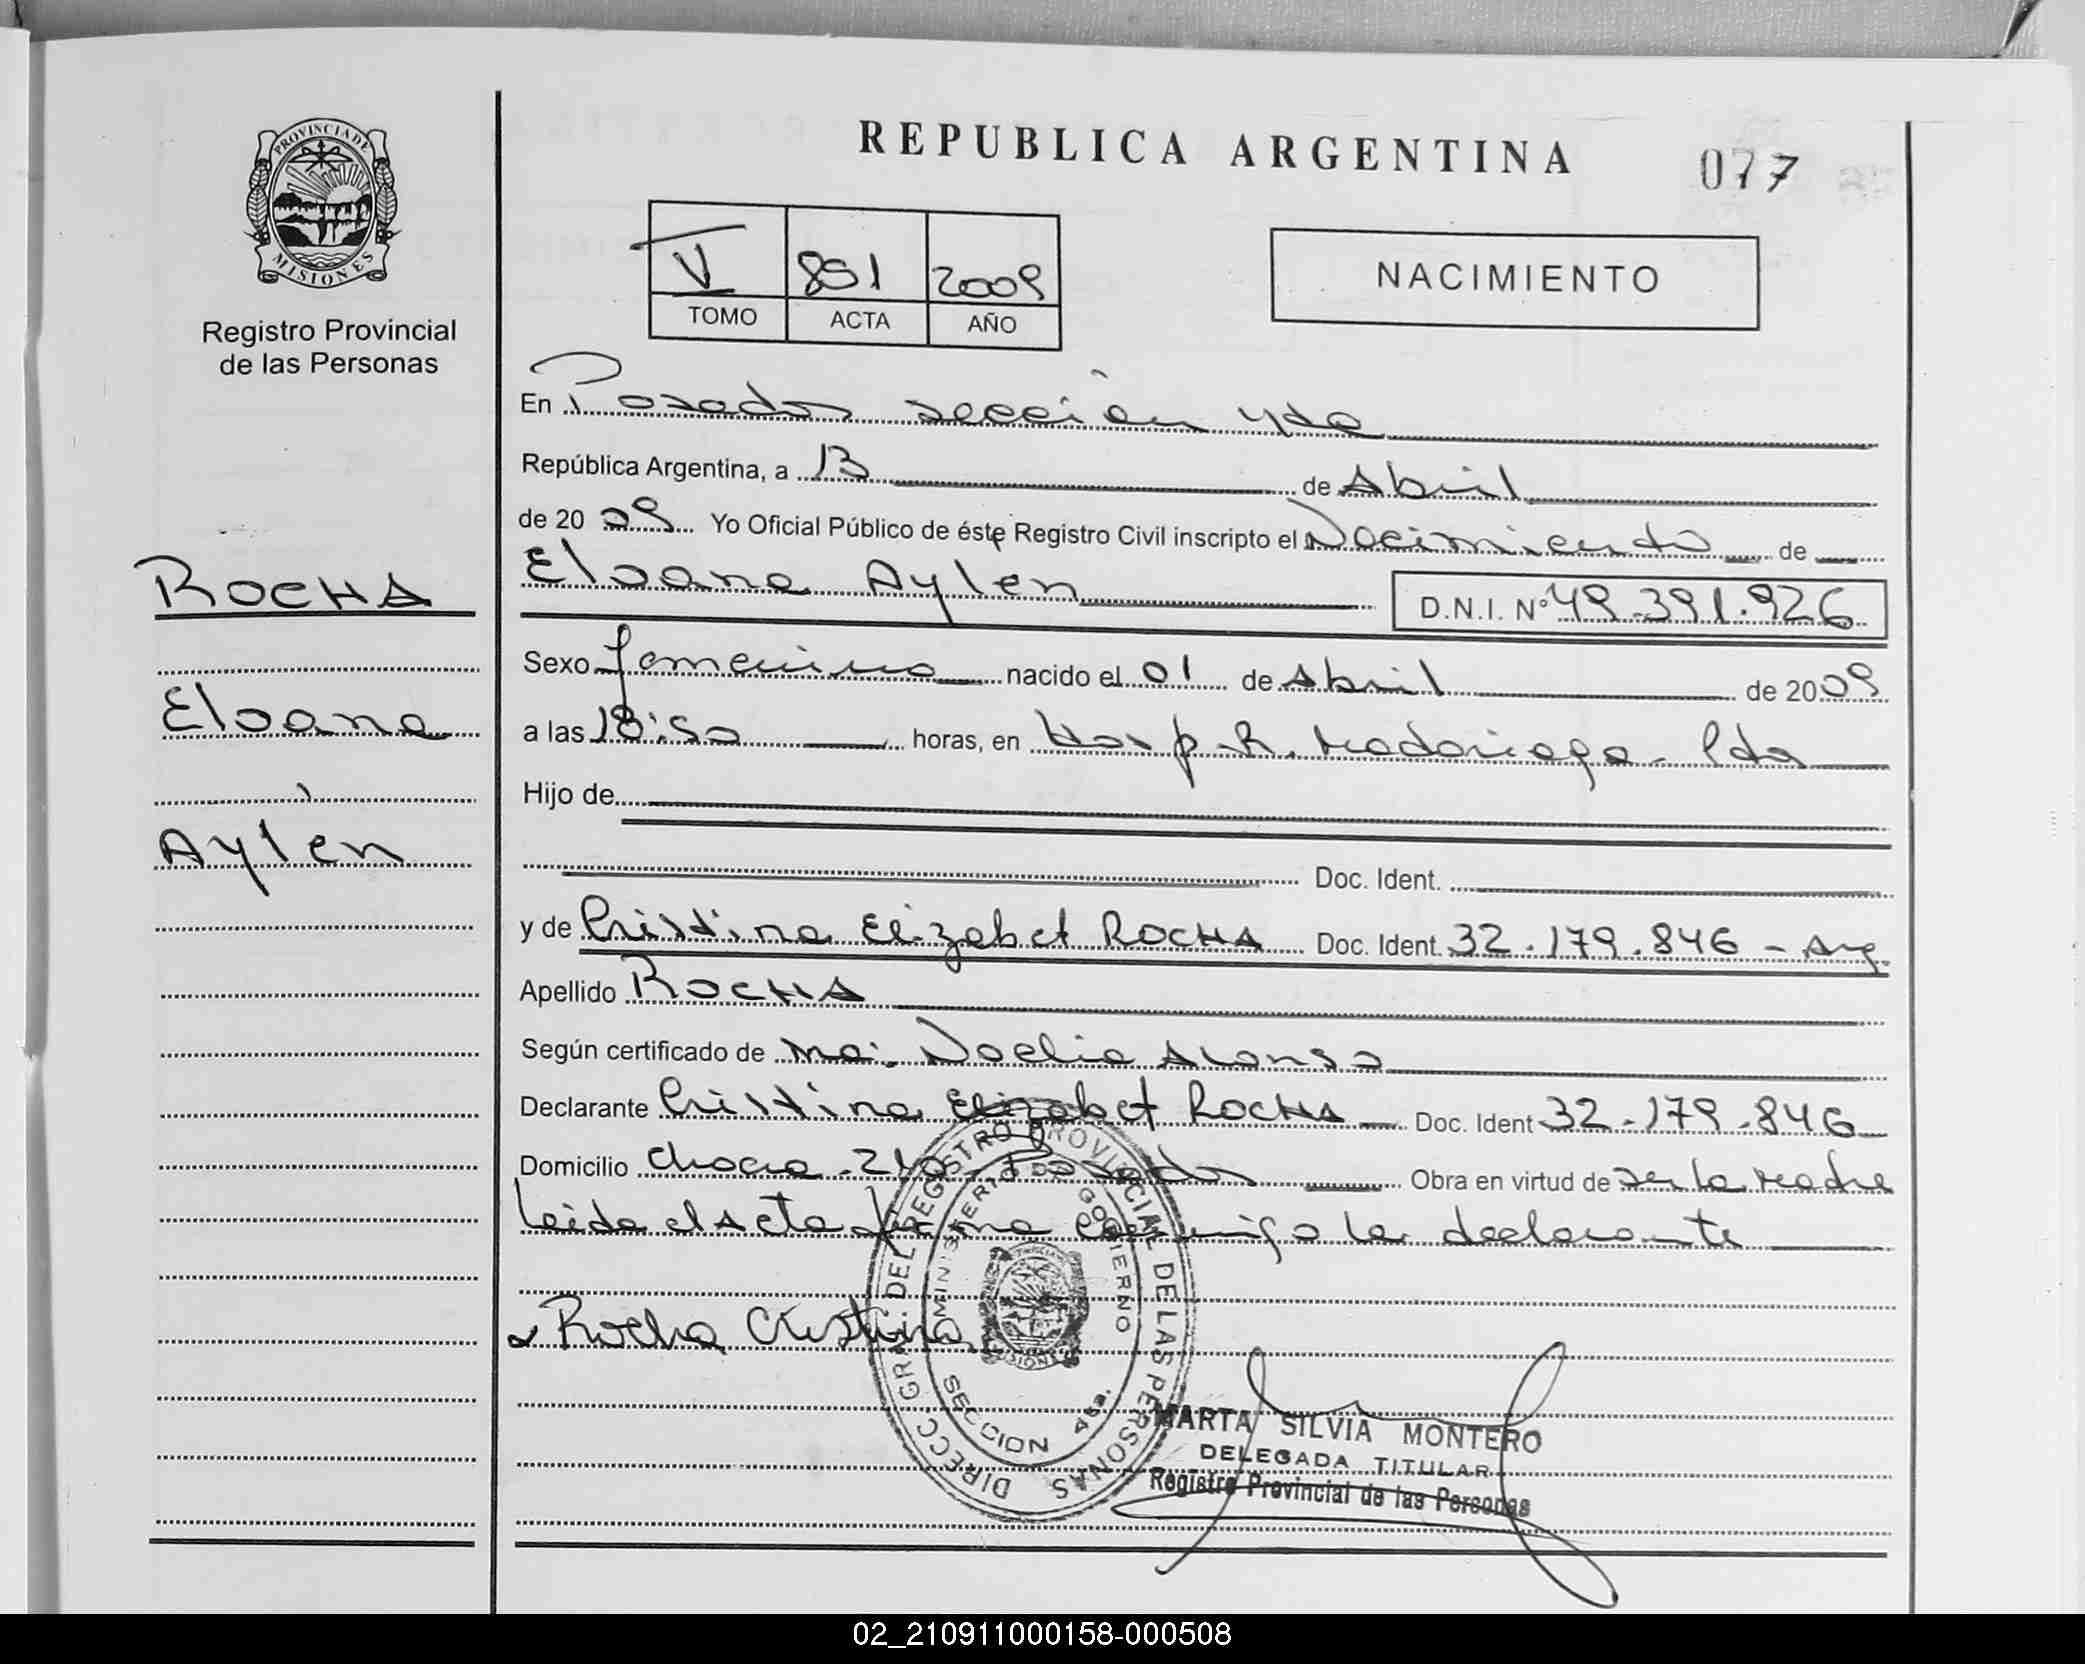 REPUBLICA ARGENTINA
077
PROVINCIA DE
MISIONES
Registro Provincial
de las Personas
V 891 2009
TOMO ACTA AÑO
NACIMIENTO
En Posadas sección 4ta
República Argentina, a 13 de Abril
de 20 09 Yo Oficial Público de éste Registro Civil inscripto el Nacimiento de
Eloana Aylen
D.N.I. Nº 49.391.926
ROCHA
Eloana
Aylén
Sexo femenino nacido el 01 de Abril de 20 09
a las 18:50 horas, en Hosp. R. Madariaga - Pdas
Hijo de
Doc. Ident.
y de Cristina Elizabet ROCHA Doc. Ident. 32.179.846 - Arg.
Apellido ROCHA
Según certificado de Ma. Noelia Alonso
Declarante Cristina Elizabet ROCHA Doc. Ident 32.179.846
Domicilio Posadas Obra en virtud de ser la madre
Leida el Acta firma conmigo la declarante
Rocha Cristina
DIRECC. GRAL. DEL REGISTRO PROVINCIAL DE LAS PERSONAS
MINISTERIO DE GOBIERNO
SECCION 4ta.
MARTA SILVIA MONTERO
DELEGADA TITULAR
Registro Provincial de las Personas
02_210911000158-000508